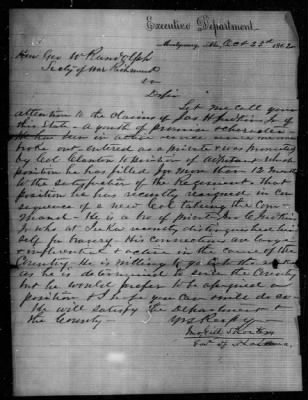 Executive Department.
Montgomery, Ala, Oct 23rd 1862
Hon Geo W Randolph
Secty of War Richmond
Va
Dr Sir
Let me call your
attention to the claims of Jas H of
this State - a youth of promise & character
He has been in active since since the war
broke out - entered as a private & was promoted
by Col Clanton to position of Adjutant which
position he has filled for more than 12 months
to the satisfaction of the Regiment - that
position he has recently resigned in con
sequence of a new Col taking the Com
mand - He is a bro of
Jr who at Iuka recently distinguished him
self for bravery - His connections are large
& influential & active in the cause of the
Country - He is willing to go into the ranks
as he is determined to serve the Country
but he would prefer to be assigned a
position & I hope you can & will do so -
He will satisfy the Department &
the Country -
Yrs Respy
Jno Gill Shorter
Gov of Alabama